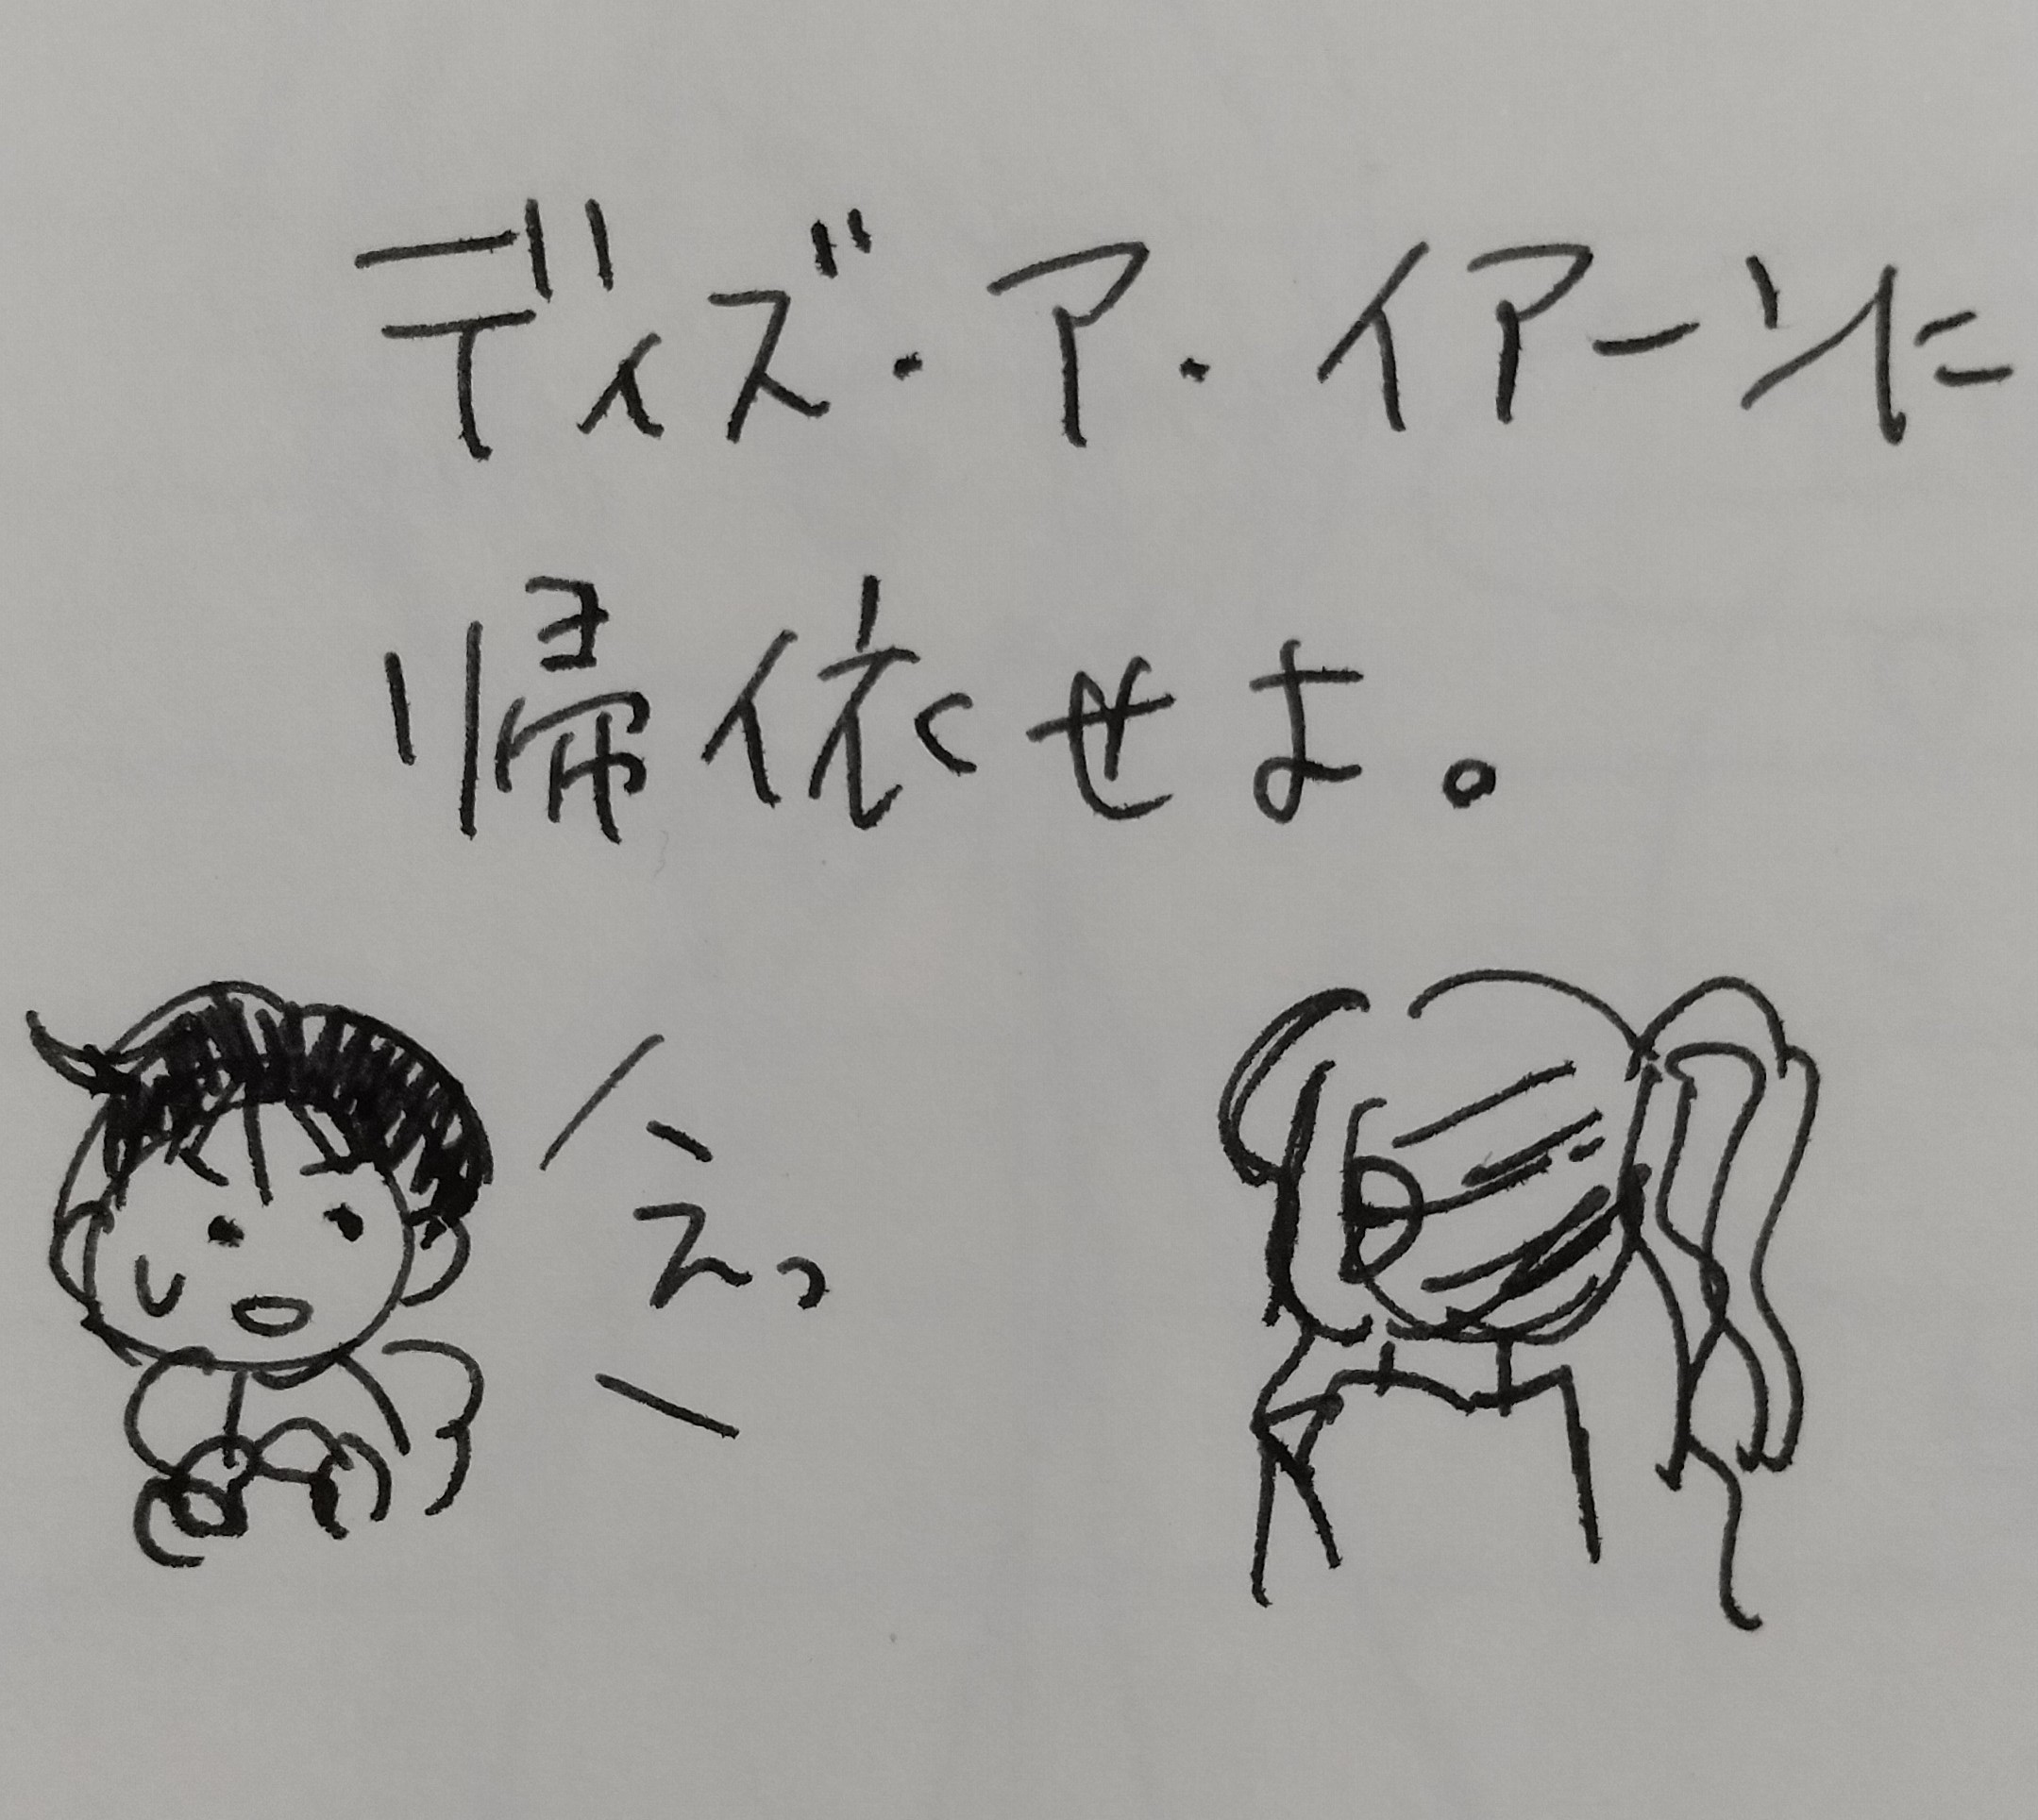 ディズ・ア・イアーンに
帰依せよ。
えっ